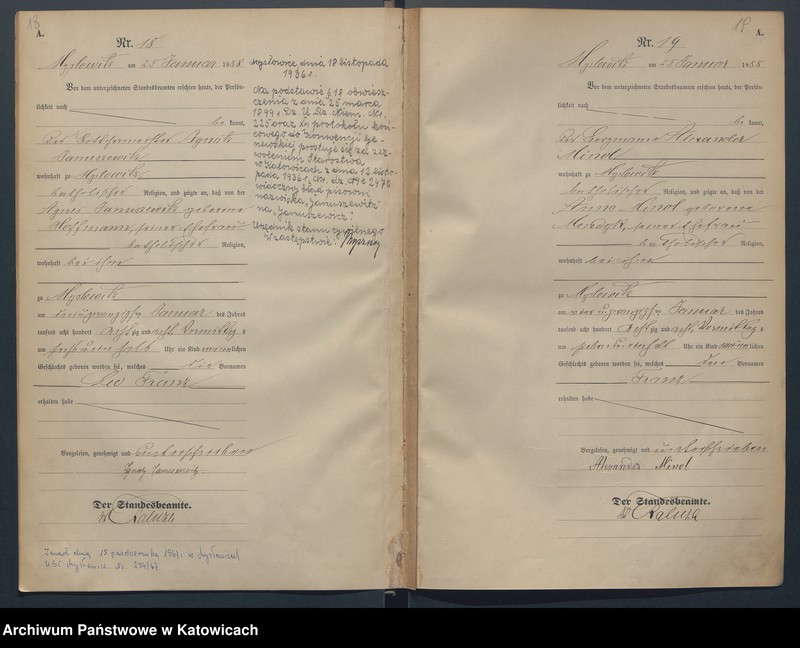 13
A.
Nr. 18
Myslowitz am 25 Januar 1888
Vor dem unterzeichneten Standesbeamten erschien heute, der Persön-
lichkeit nach
be kannt,
Der Ignatz
Januszewitz
wohnhaft zu Myslowitz
katholischer Religion, und zeigte an, daß von der
Agnes Januszewitz geborene
Hoffmann, seiner Ehefrau
katholischer Religion,
wohnhaft bei ihm
zu Myslowitz
am Januar des Jahres
tausend acht hundert achtzig und acht Vormittags
um Uhr ein Kind männlichen
Geschlechts geboren worden sei, welches die Vornamen
Leo Franz
erhalten habe
Vorgelesen, genehmigt und unterschrieben
Ignatz Januszewitz
Der Standesbeamte.
Kaluza
Mysłowice, dnia 18 listopada
1936 r.
Na podstawie § 18 obwiesz-
czenia z dnia 25 marca
1899 r. Dz. U. Rz. Niem. Nr.
225 oraz protokołu koń-
cowego do Konwencji Ge-
newskiej prostuje się za zez-
woleniem Starostwa
w Katowicach z dnia 12 listo-
pada 1936 r., Nr.
właczny błąd pisowni
nazwiska „Januszewitz"
na „Januszewicz".
Urzędnik stanu cywilnego
W zastępstwie:
Zmarł dnia 18 października 1967 r. w Mysłowicach
USC Mysłowice Nr. 294/67
19
A.
Nr. 19
Myslowitz am 25 Januar 1888
Vor dem unterzeichneten Standesbeamten erschien heute, der Persön-
lichkeit nach
be kannt,
Der Bergmann Alexander
Minol
wohnhaft zu Myslowitz
katholischer Religion, und zeigte an, daß von der
Anna Minol geborene
seiner Ehefrau
katholischer Religion,
wohnhaft bei ihm
zu Myslowitz
am Januar des Jahres
tausend acht hundert achtzig und acht Vormittags
um Uhr ein Kind männlichen
Geschlechts geboren worden sei, welches den Vornamen
Franz
erhalten habe
Vorgelesen, genehmigt und unterschrieben
Alexander Minol
Der Standesbeamte.
Kaluza
Archiwum Państwowe w Katowicach